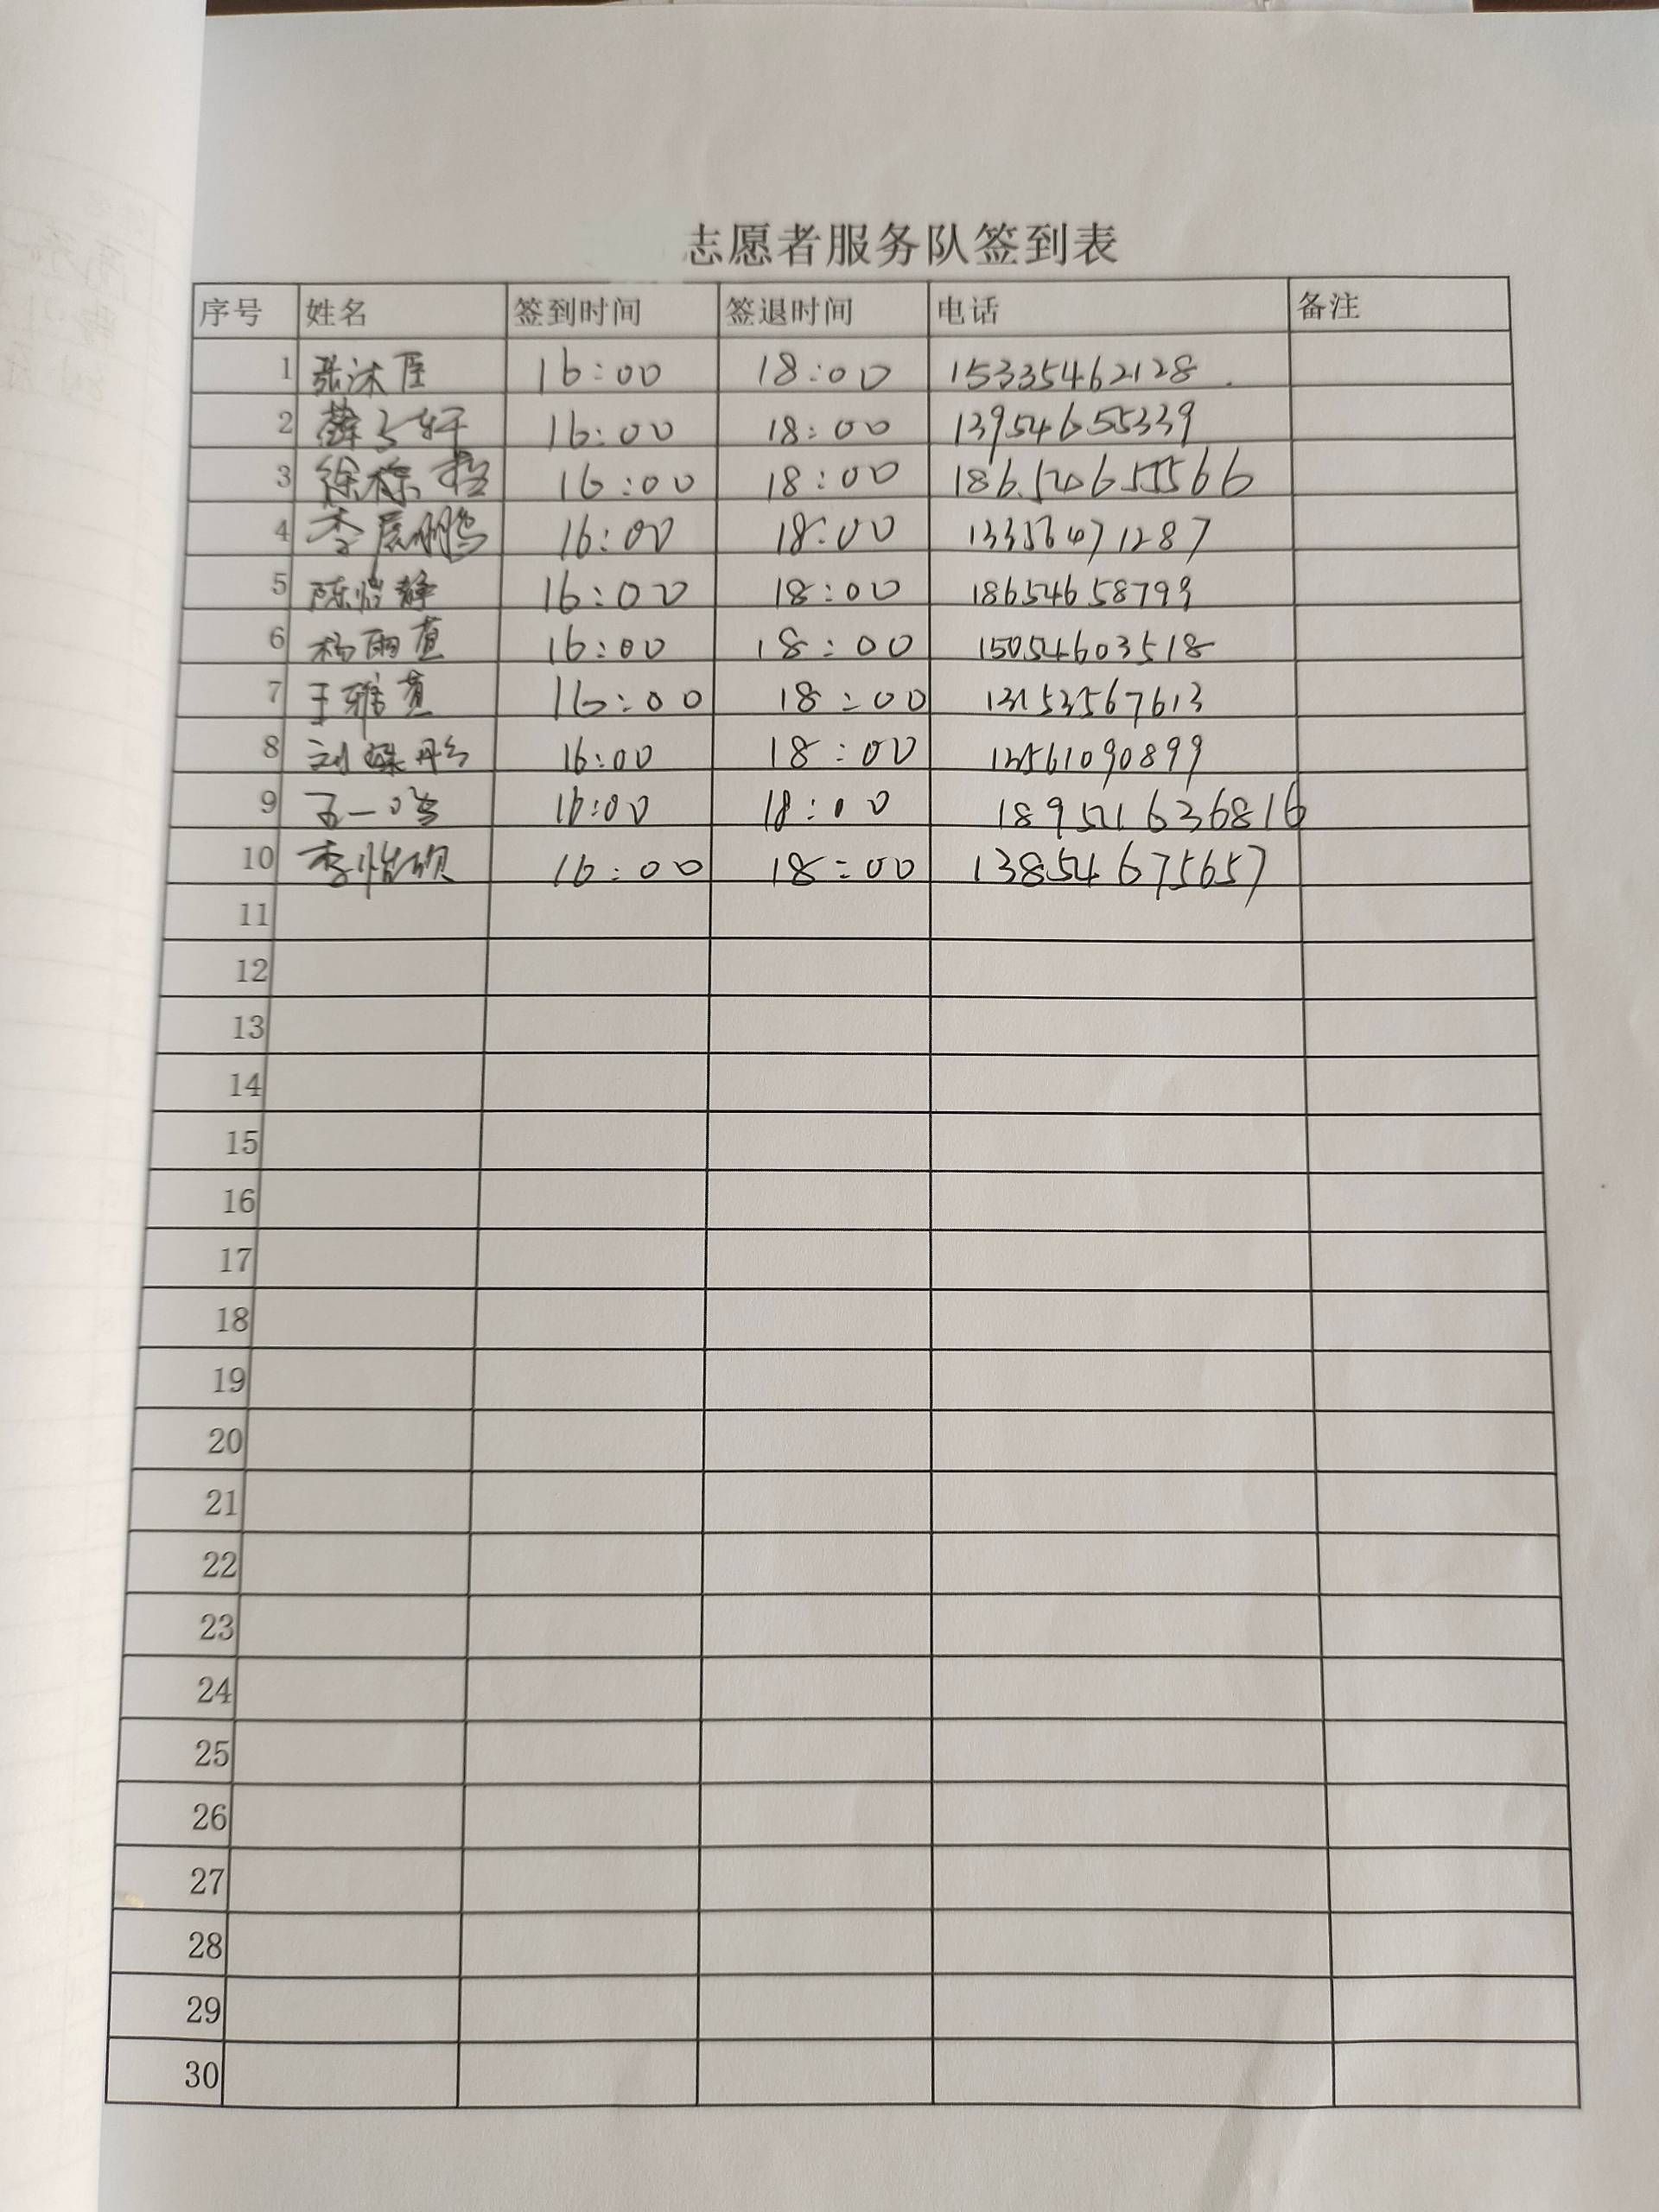 志愿者服务队签到表
序号 姓名 签到时间 签退时间 电话 备注
1 张沐臣 16:00 18:00 15335462128
2 薛子轩 16:00 18:00 13954655339
3 徐 16:00 18:00
4 李辰鹏 16:00 18:00 13356471287
5 陈怡静 16:00 18:00 18654658799
6 杨雨萱 16:00 18:00 15054603518
7 王雅萱 16:00 18:00
8 刘 彤 16:00 18:00
9 一鸣 16:00 18:00
10 李怡 16:00 18:00 13854675657
11
12
13
14
15
16
17
18
19
20
21
22
23
24
25
26
27
28
29
30